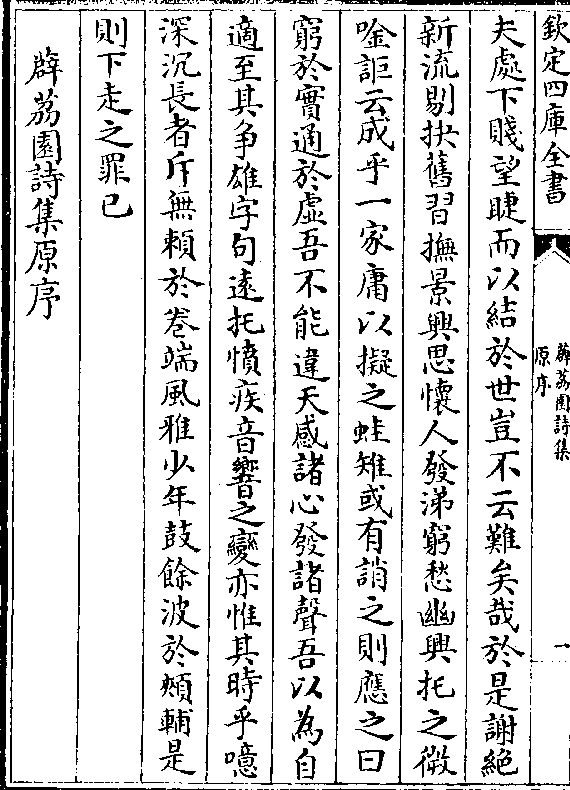 欽定四庫全書
薜荔園詩集
原序
一
夫處下賤望睫而以結於世豈不云難矣哉於是謝絕
新流剔抉舊習撫景興思懷人發涕窮愁幽興托之微
唫詎云成乎一家庸以擬之蛙雉或有誚之則應之曰
窮於實通於虛吾不能違天感諸心發諸聲吾以為自
適至其爭雄字句遠托憤疾音響之變亦惟其時乎噫
深沉長者斥無賴於卷端風雅少年鼓餘波於頰輔是
則下走之罪已
薜荔園詩集原序